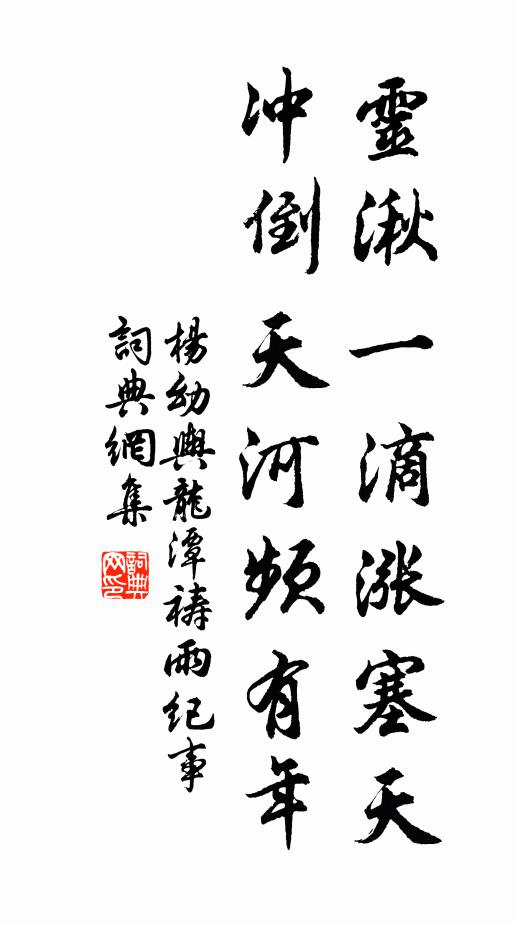 靈湫一滴涨塞天
冲倒天河频有年
楊幼輿龍潭禱雨紀事
詞典網集
詞典网印